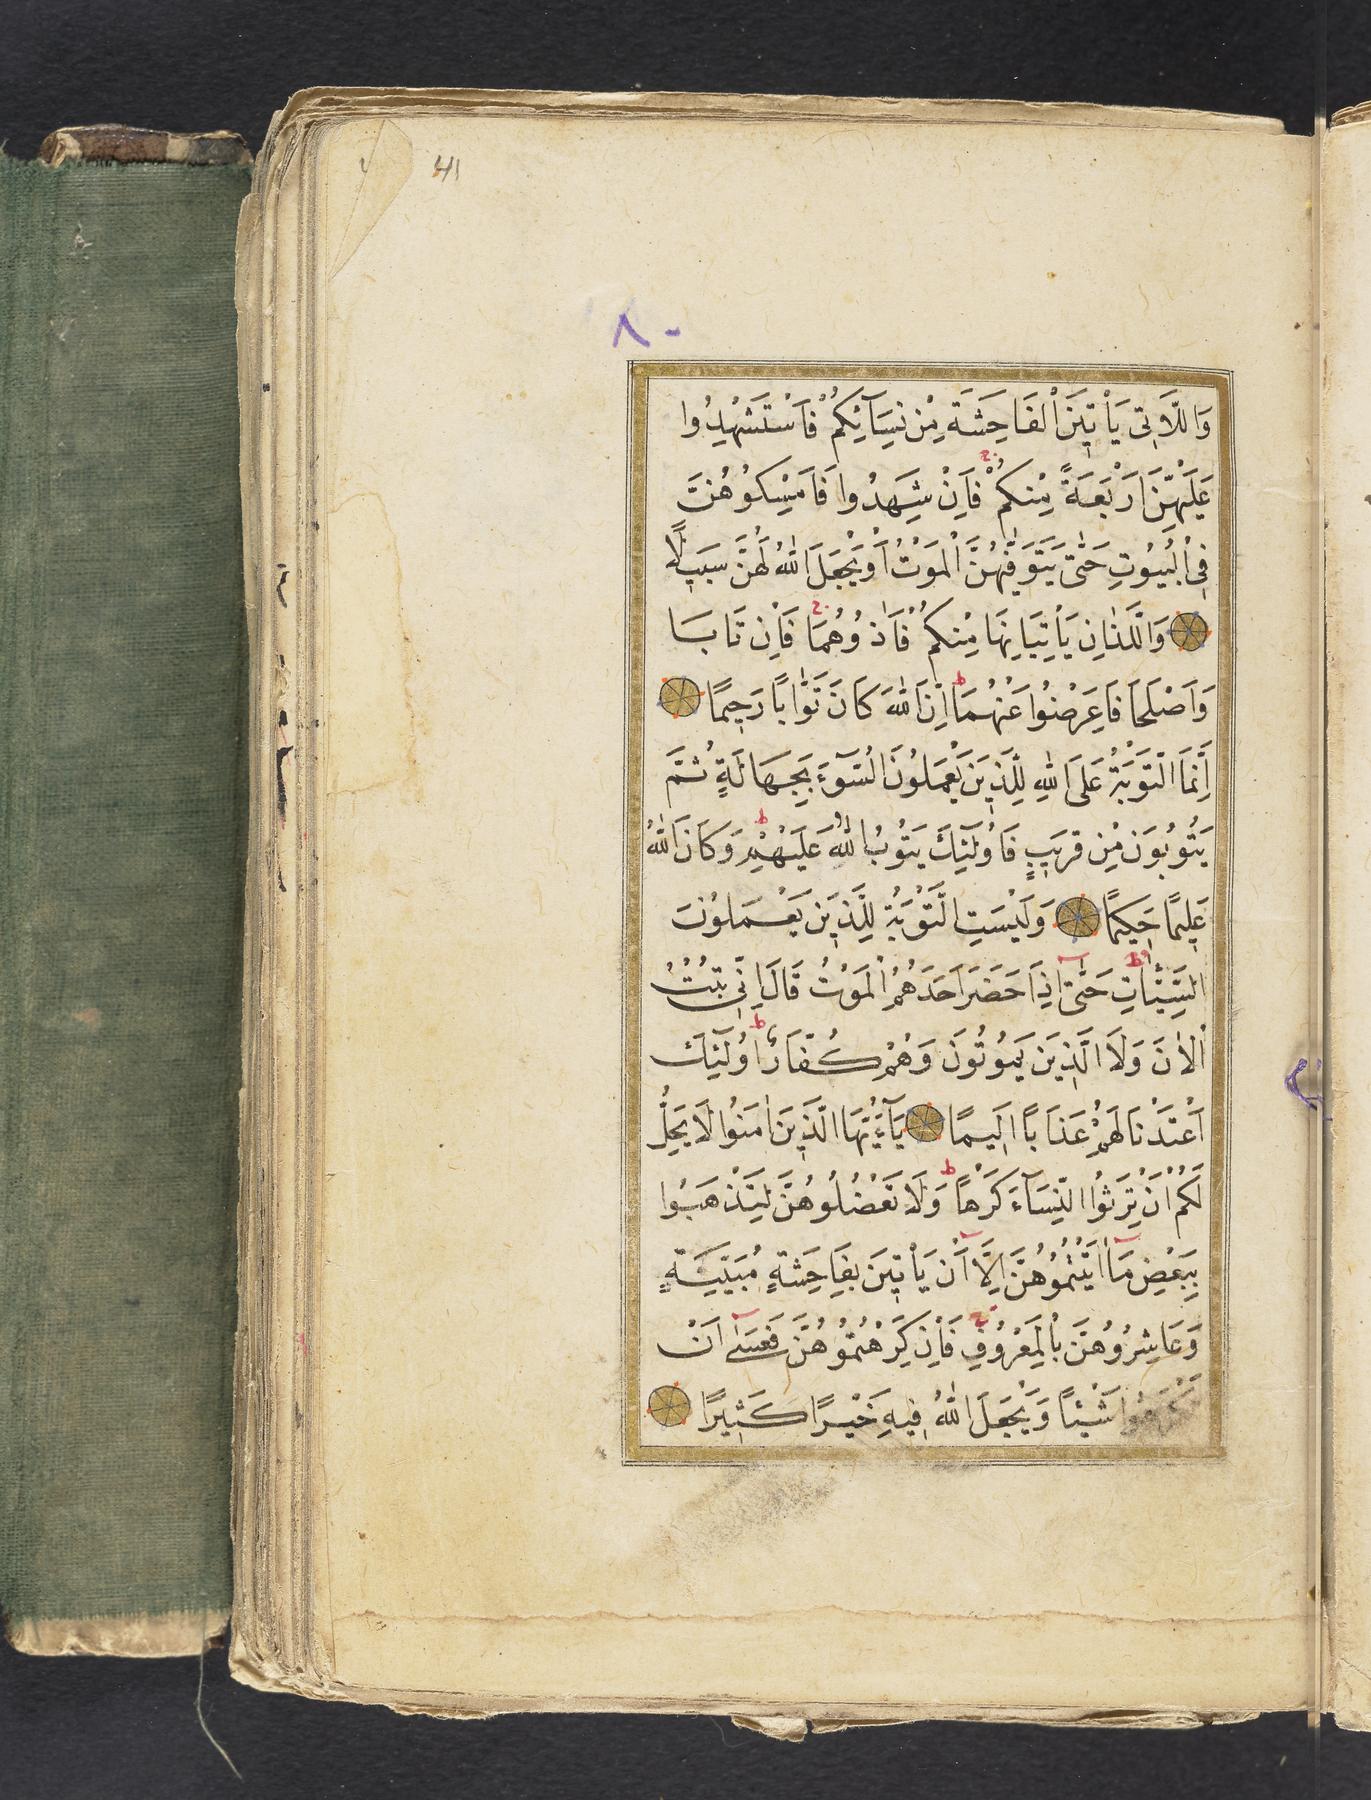 41
٨٠
وَاللَّاتِى يَأْتِينَ الْفَاحِشَةَ مِنْ نِسَآئِكُمْ فَاسْتَشْهِدُوا
عَلَيْهِنَّ اَرْبَعَةً مِنْكُمْ فَاِنْ شَهِدُوا فَاَمْسِكُوهُنَّ
فِى الْبُيُوتِ حَتّٰى يَتَوَفّٰيهُنَّ الْمَوْتُ اَوْ يَجْعَلَ اللّٰهُ لَهُنَّ سَبِيلًا
وَالَّذَانِ يَأْتِيَانِهَا مِنْكُمْ فَاٰذُوهُمَا فَاِنْ تَابَا
وَاَصْلَحَا فَاَعْرِضُوا عَنْهُمَا اِنَّ اللّٰهَ كَانَ تَوَّابًا رَحِيمًا
اِنَّمَا التَّوْبَةُ عَلَى اللّٰهِ لِلَّذِينَ يَعْمَلُونَ السُّوٓءَ بِجَهَالَةٍ ثُمَّ
يَتُوبُونَ مِنْ قَرِيبٍ فَاُولٰٓئِكَ يَتُوبُ اللّٰهُ عَلَيْهِمْ وَكَانَ اللّٰهُ
عَلِيمًا حَكِيمًا وَلَيْسَتِ التَّوْبَةُ لِلَّذِينَ يَعْمَلُونَ
السَّيِّئَاتِ حَتّٰىٓ اِذَا حَضَرَ اَحَدَهُمُ الْمَوْتُ قَالَ اِنِّى تُبْتُ
الْاٰنَ وَلَا الَّذِينَ يَمُوتُونَ وَهُمْ كُفَّارٌ اُولٰٓئِكَ
اَعْتَدْنَا لَهُمْ عَذَابًا اَلِيمًا يَآءَيُّهَا الَّذِينَ اٰمَنُوا لَا يَحِلُّ
لَكُمْ اَنْ تَرِثُوا النِّسَآءَ كَرْهًا وَلَا تَعْضُلُوهُنَّ لِتَذْهَبُوا
بِبَعْضِ مَآ اٰتَيْتُمُوهُنَّ اِلَّآ اَنْ يَأْتِينَ بِفَاحِشَةٍ مُبَيِّنَةٍ
وَعَاشِرُوهُنَّ بِالْمَعْرُوفِ فَاِنْ كَرِهْتُمُوهُنَّ فَعَسٰٓى اَنْ
تَكْرَهُوا شَيْئًا وَيَجْعَلَ اللّٰهُ فِيهِ خَيْرًا كَثِيرًا